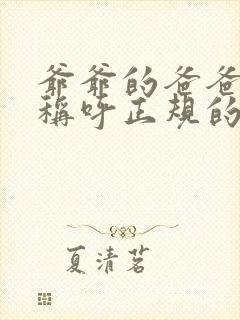 爷爷的爸爸
稱呼正規的
夏清茗